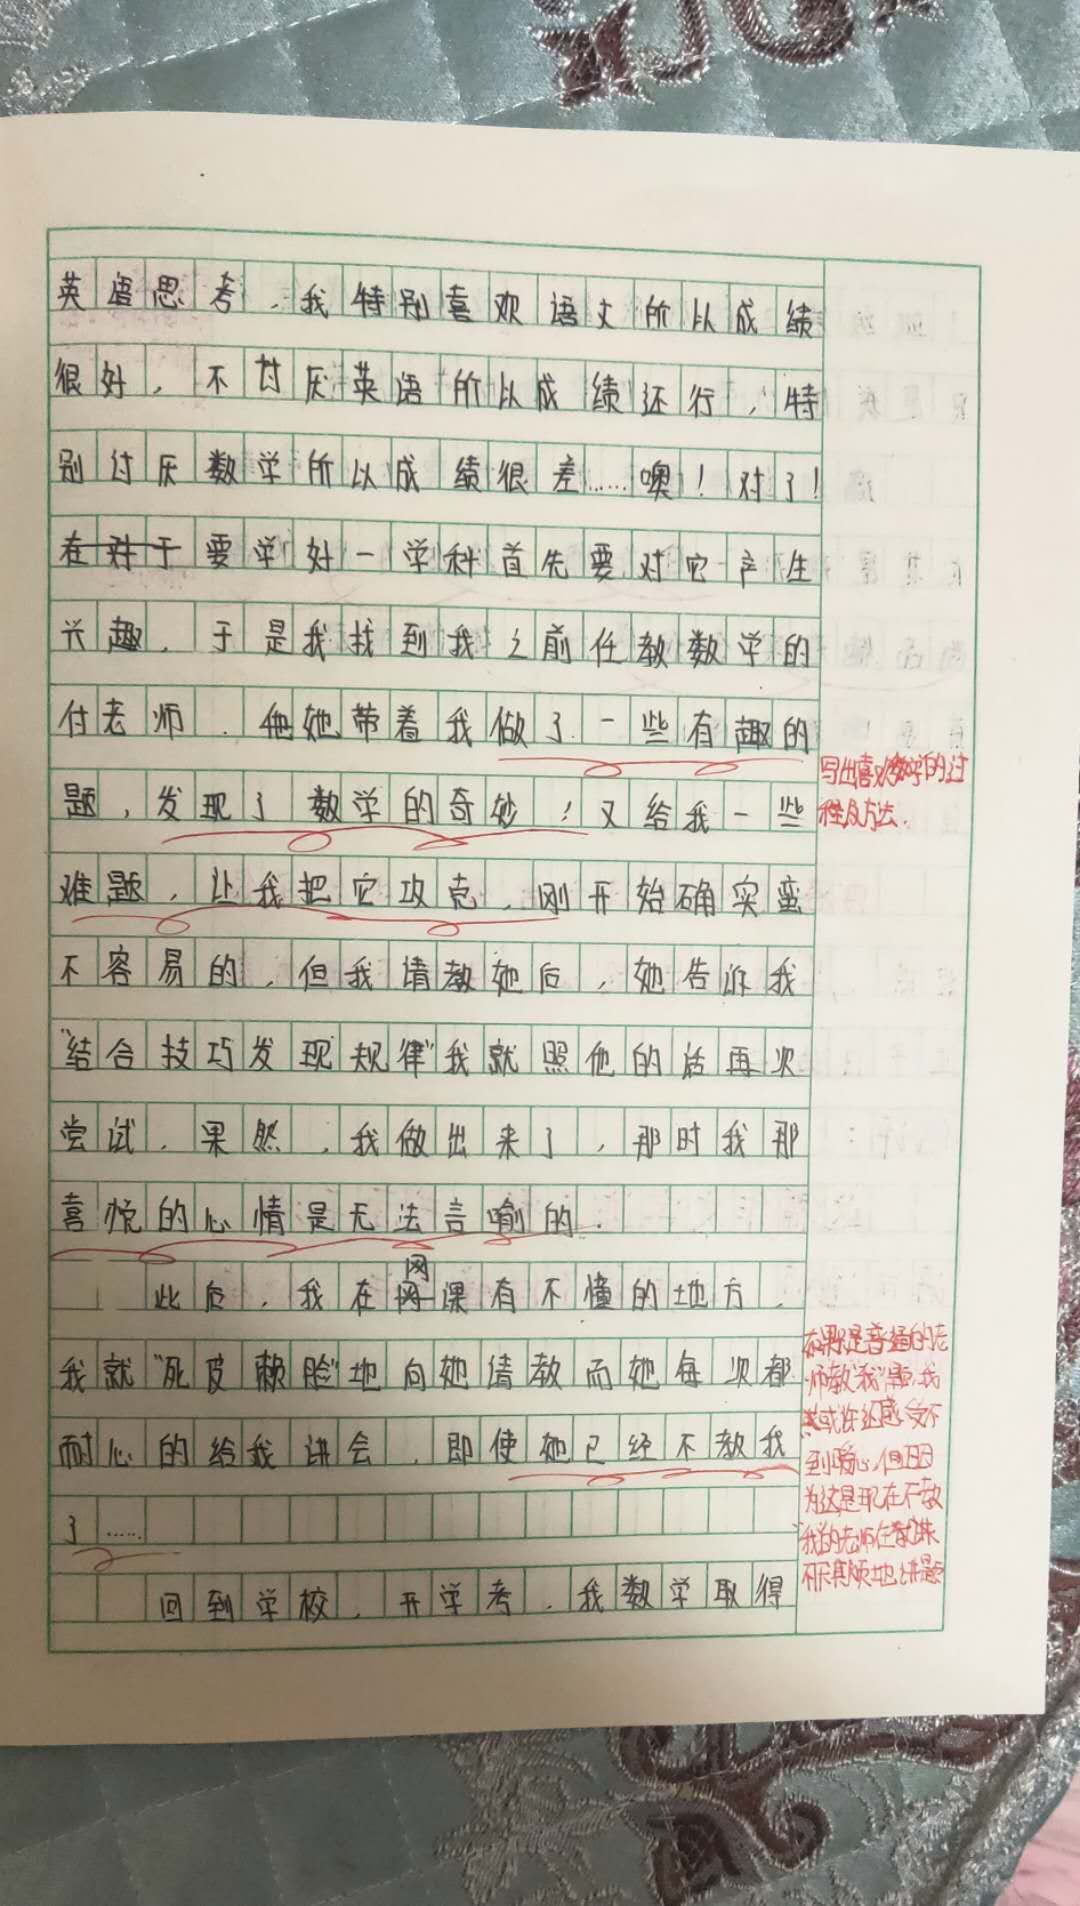 英语思考，我特别喜欢语文所以成绩
很好，不讨厌英语所以成绩还行，特
别讨厌数学所以成绩很差……噢！对了！
在对于要学好一学科首先要对它产生
兴趣，于是我找到我之前任教数学的
付老师，他她带着我做了一些有趣的
题，发现了数学的奇妙！又给我一些
难题，让我把它攻克，刚开始确实蛮
不容易的，但我请教她后，她告诉我
“结合技巧发现规律”我就照他的话再次
尝试，果然，我做出来了，那时我那
喜悦的心情是无法言喻的．
此后，我在网课有不懂的地方，
我就“死皮赖脸”地向她请教而她每次都
耐心的给我讲会，即使她已经不教我
了……
回到学校，开学考，我数学取得
写出喜欢数学的过
程及方法．
如果是普通的老
师教“我”题，我
或许还感受不
到爱心，但因
为这是现在不教
“我”的老师在
不厌其烦地讲题